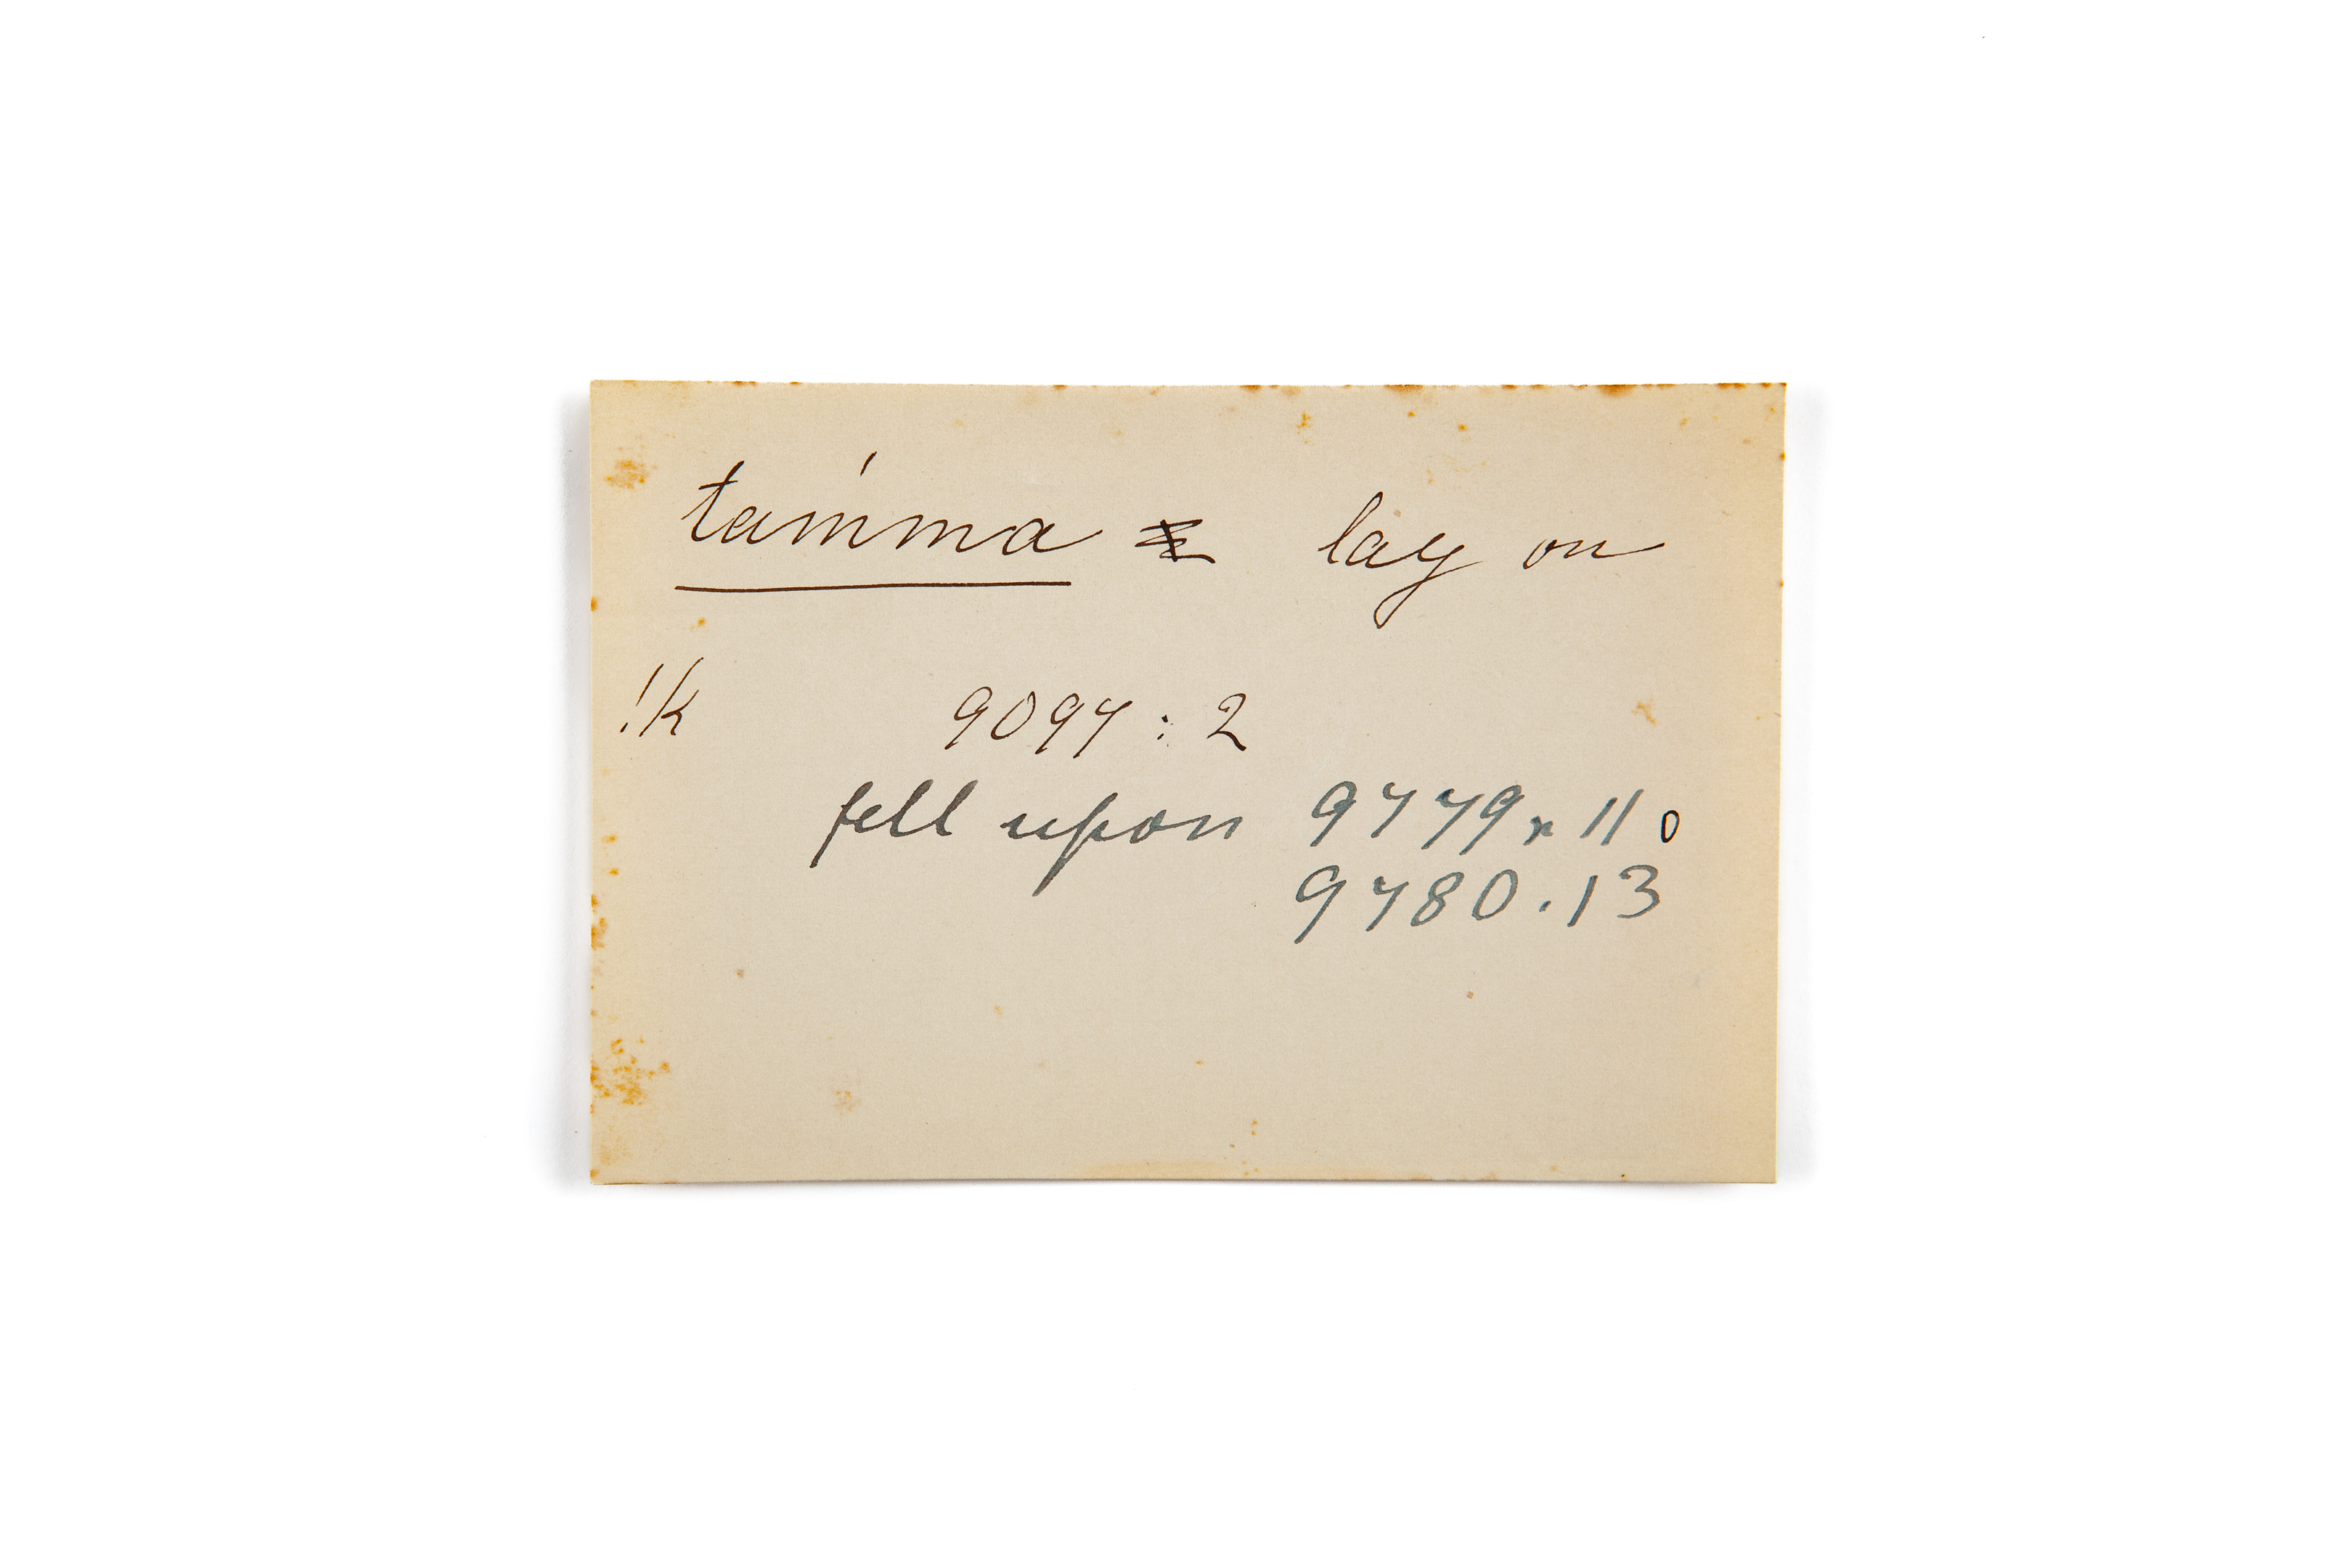 tam'ma lay on
!k 9097 : 2
fell upon 9779. 11 0
9780.13